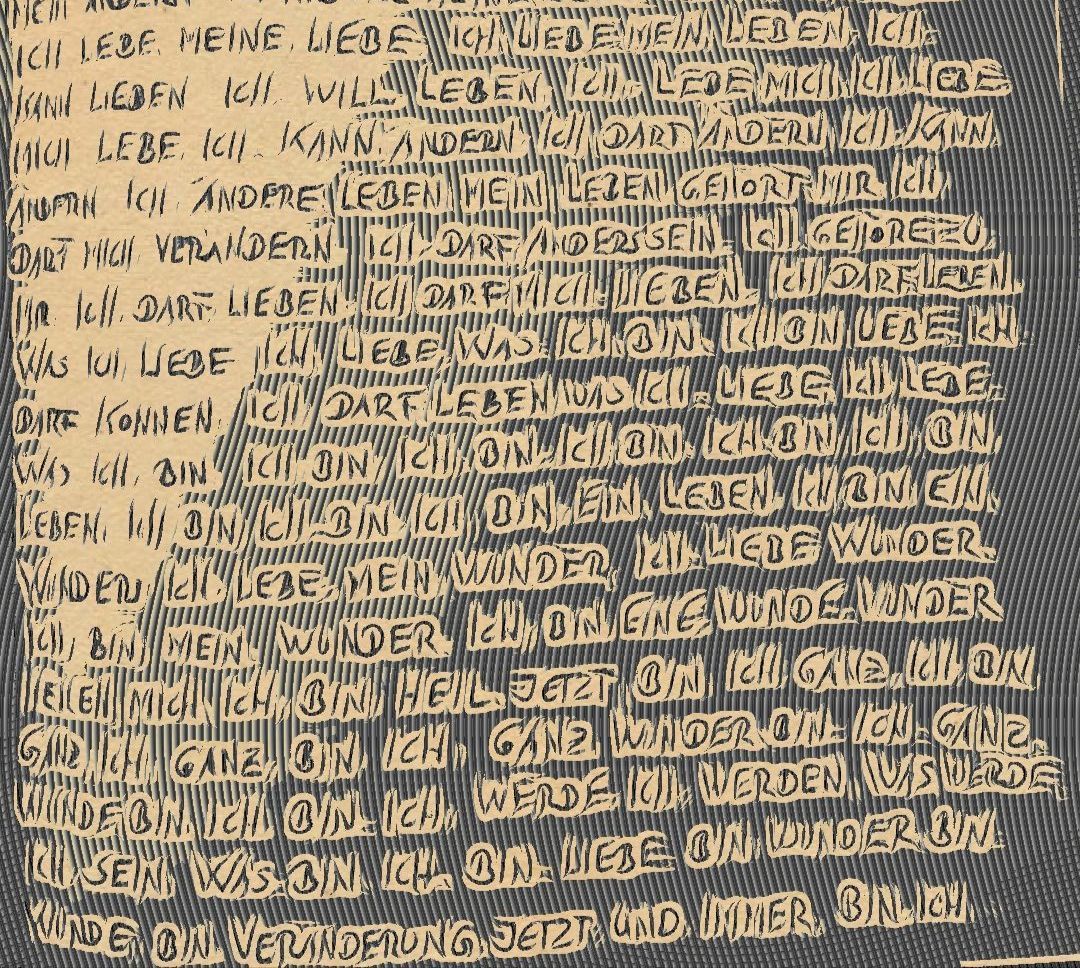 ICH LEBE MEINE LIEBE ICH LIEBE MEIN LEBEN ICH
KANN LIEBEN ICH WILL LEBEN ICH LEBE MICH ICH LIEBE
MICH LEBE ICH KANN ÄNDERN ICH DARF ÄNDERN ICH KANN
ÄNDERN ICH ÄNDERE LEBEN MEIN LEBEN GEHÖRT MIR ICH
DARF MICH VERÄNDERN ICH DARF ANDERSSEIN ICH GEHÖRE ZU
MIR ICH DARF LIEBEN ICH DARF MICH LIEBEN ICH DARF LEBEN
WAS ICH LIEBE ICH LIEBE WAS ICH BIN ICH BIN LIEBE ICH
DARF KÖNNEN ICH DARF LEBEN WAS ICH LIEBE ICH LEBE
WAS ICH BIN ICH BIN ICH BIN ICH BIN ICH BIN ICH BIN
LEBEN ICH BIN ICH BIN ICH BIN EIN LEBEN ICH BIN EIN
WUNDER ICH LEBE MEIN WUNDER ICH LIEBE WUNDER
ICH BIN MEIN WUNDER ICH BIN EINE WUNDE WUNDER
HEILEN MICH ICH BIN HEIL JETZT BIN ICH GANZ ICH BIN
GANZ ICH GANZ BIN ICH GANZ WUNDER BIN ICH GANZ
WUNDE BIN ICH BIN ICH WERDE ICH WERDEN WAS WERDE
ICH SEIN WAS BIN ICH BIN LIEBE BIN WUNDER BIN
WUNDE BIN VERÄNDERUNG JETZT UND IMMER BIN ICH